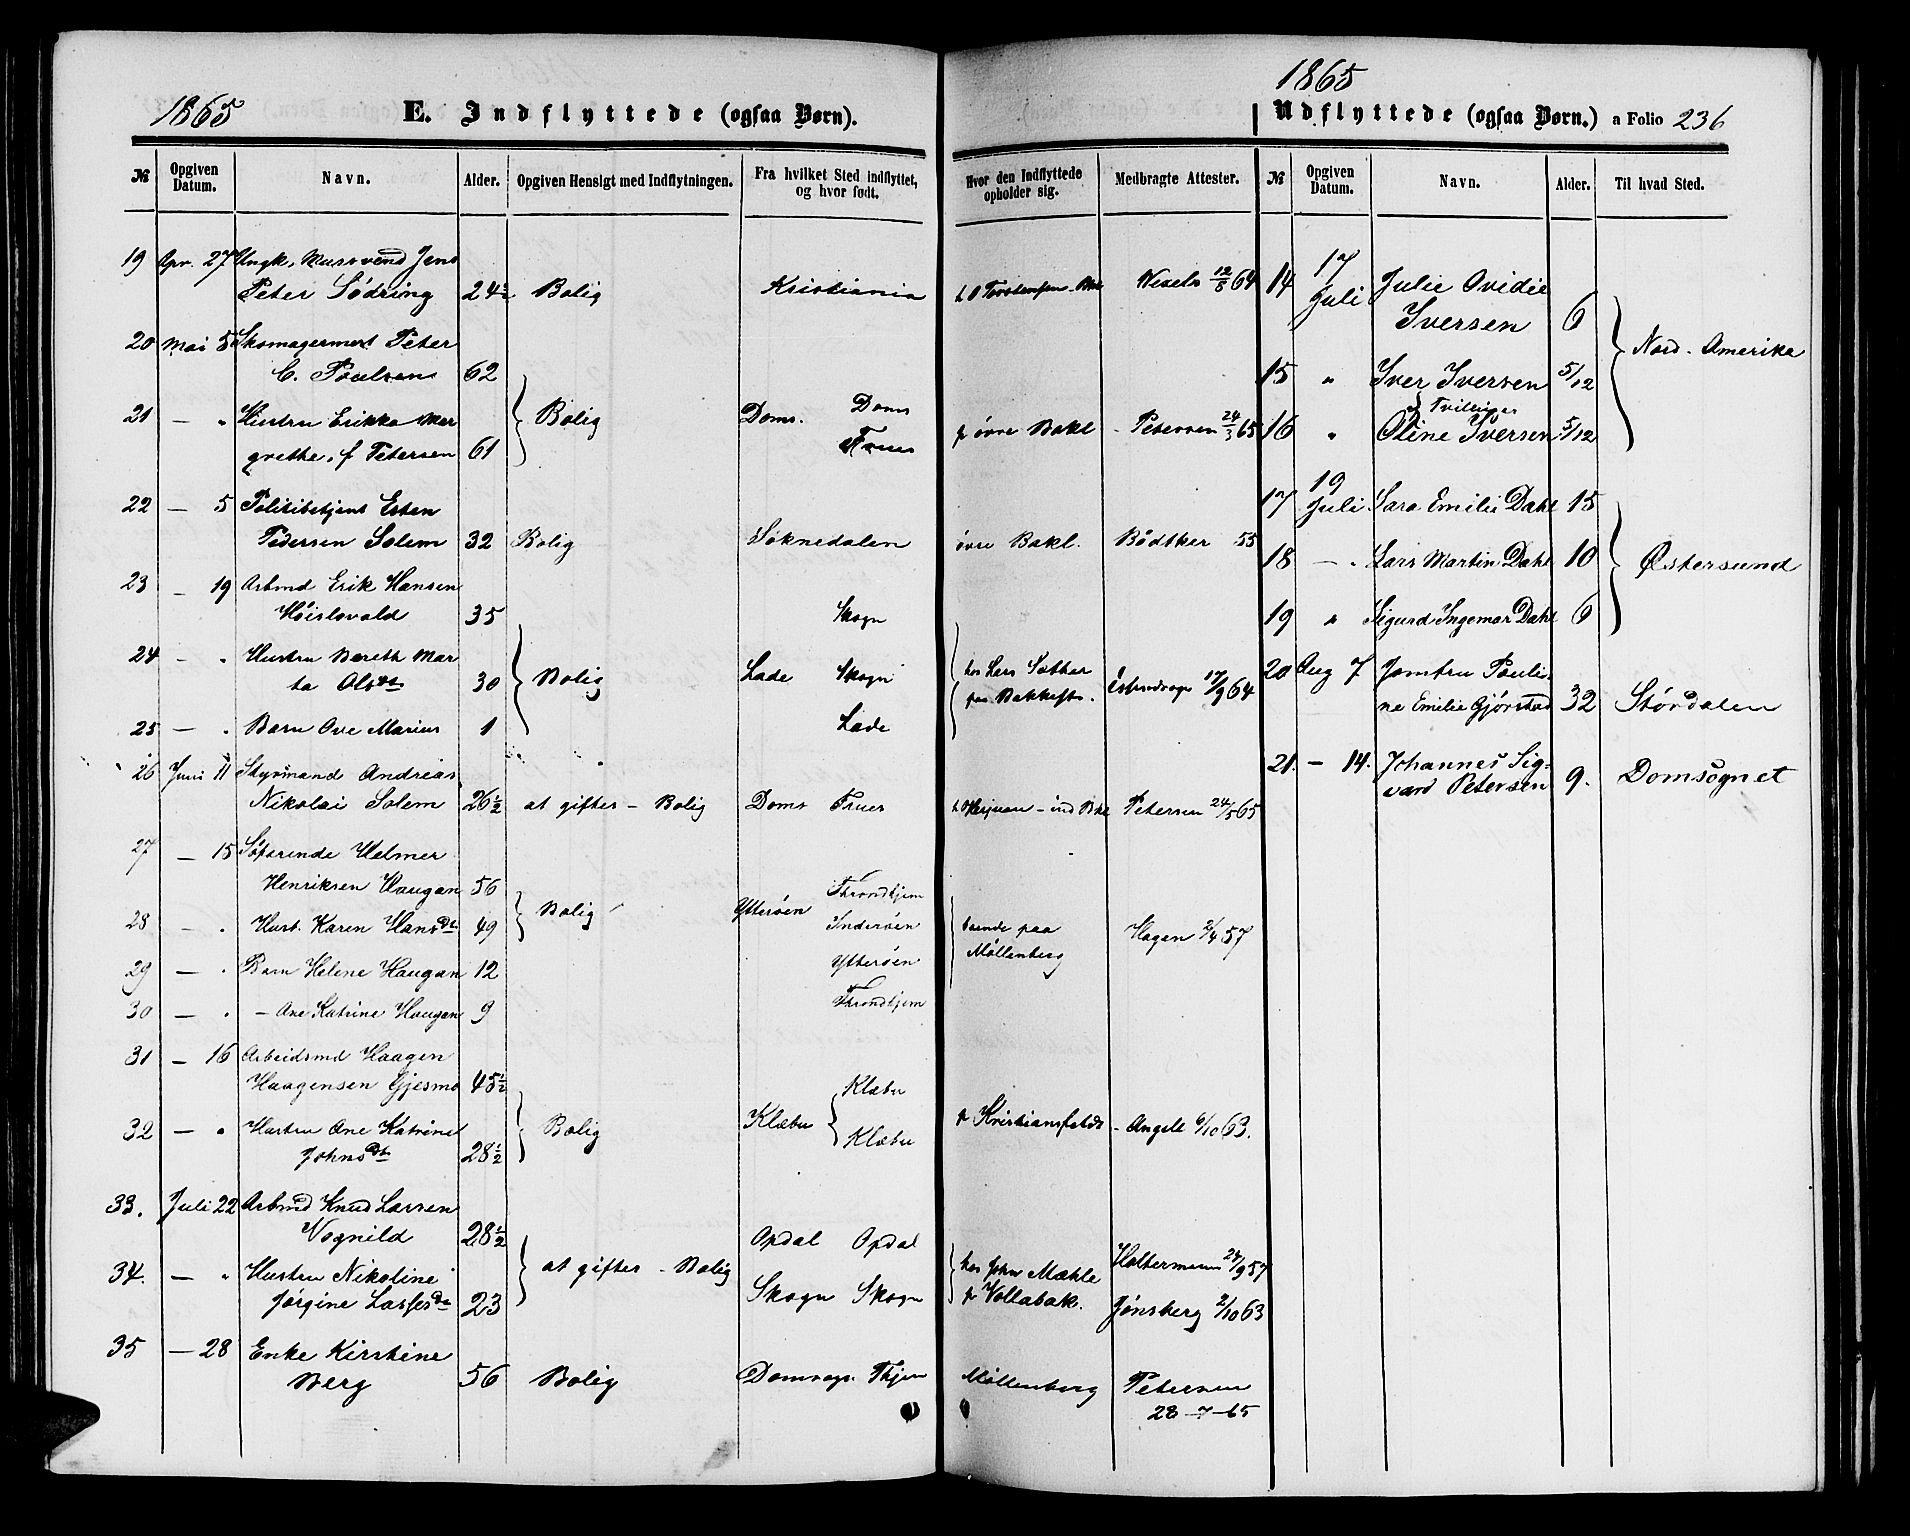 1865 E. Indflyttede (ogsaa Børn).
№ Opgiven Datum. Navn. Alder. Opgiven Hensigt med Indflytningen. Fra hvilket Sted indflyttet, og hvor født.
19 Apr. 27 Ungk. Jens
Peter Södring 24½ Bolig Kristiania
20 Mai 5 Skomagermest Peter
C. Poulsen 62
21 — " Hustru Erikka Mar
grethe, f Petersen 61 Bolig Doms. Doms Frues
22 — 5 Politibetjent Esten
Pedersen Solem 32 Bolig Soknedalen
23 — 19 Arbmd Erik Hansen
Höislovald 35 Skogn
24 — " Hustru Bereth Mar
ta Olsdt 30 Bolig Lade Skogn
25 — " Barn Ove Marius 1 Lade
26 Juni 11 Styrmand Andreas
Nikolai Solem 26½ at giftes — Bolig Doms Frues
27 — 15 Söfarende Helmer
Henriksen Haugan 56 Bolig Ytteröen Throndhjem
28 — " Hust. Karen Hansdt 49 Inderöen
29 — " Barn Helene Haugan 12 Ytteröen
30 — " — Ane Katrine Haugan 9 Throndhjem
31 — 16 Arbeidsmd Haagen
Haagensen Gjesmo 45½ Klæbu
32 — " Hustru Ane Katrine
Johnsdt 28½ Bolig Klæbu Klæbu
33. Juli 22 Arbmd Knud Larsen
Vognild 28½ Opdal Opdal
34. — " Hustru Nikoline
Jörgine Lassesdt 23 at giftes — Bolig Skogn Skogn
35 — 28 Enke Kirstine
Berg 56 Bolig Domsogn. Thjem
1865
Udflyttede (ogsaa Børn.) a Folio 236
Hvor den Indflyttede opholder sig. Medbragte Attester. № Opgiven Datum. Navn. Alder. Til hvad Sted.
Wexels 12/8 64
p övre Bakl — Petersen 24/3 65
övre Bakl. Bödtker 55
hos Lars Sæther
paa Bakkeft. 17/9 64
Petersen 24/5 65
boende paa
Möllenberg Hagen 2/4 57
p Kristiansfelds — Angell 6/10 63.
hos John Mæhle
p Vollabak. Holtermann 24/9 57
Jönsberg 2/10 63
Möllenberg Petersen
28-7-65
14 17 Juli Julie Ovidie
Iversen 6
15 " Iver Iversen 5/12 Nord-Amerika
Tvillinger
16 " Oline Iversen 5/12
17 19 Juli Sara Emilie Dahl 15
18 — " Lars Martin Dahl 10 Østersund
19 " Sigurd Ingemar Dahl 6
20 Aug 7 Jomfru Pauli-
ne Emilie Gjörstad 32 Stördalen
21. — 14. Johannes Sig-
vard Petersen 9. Domsognet